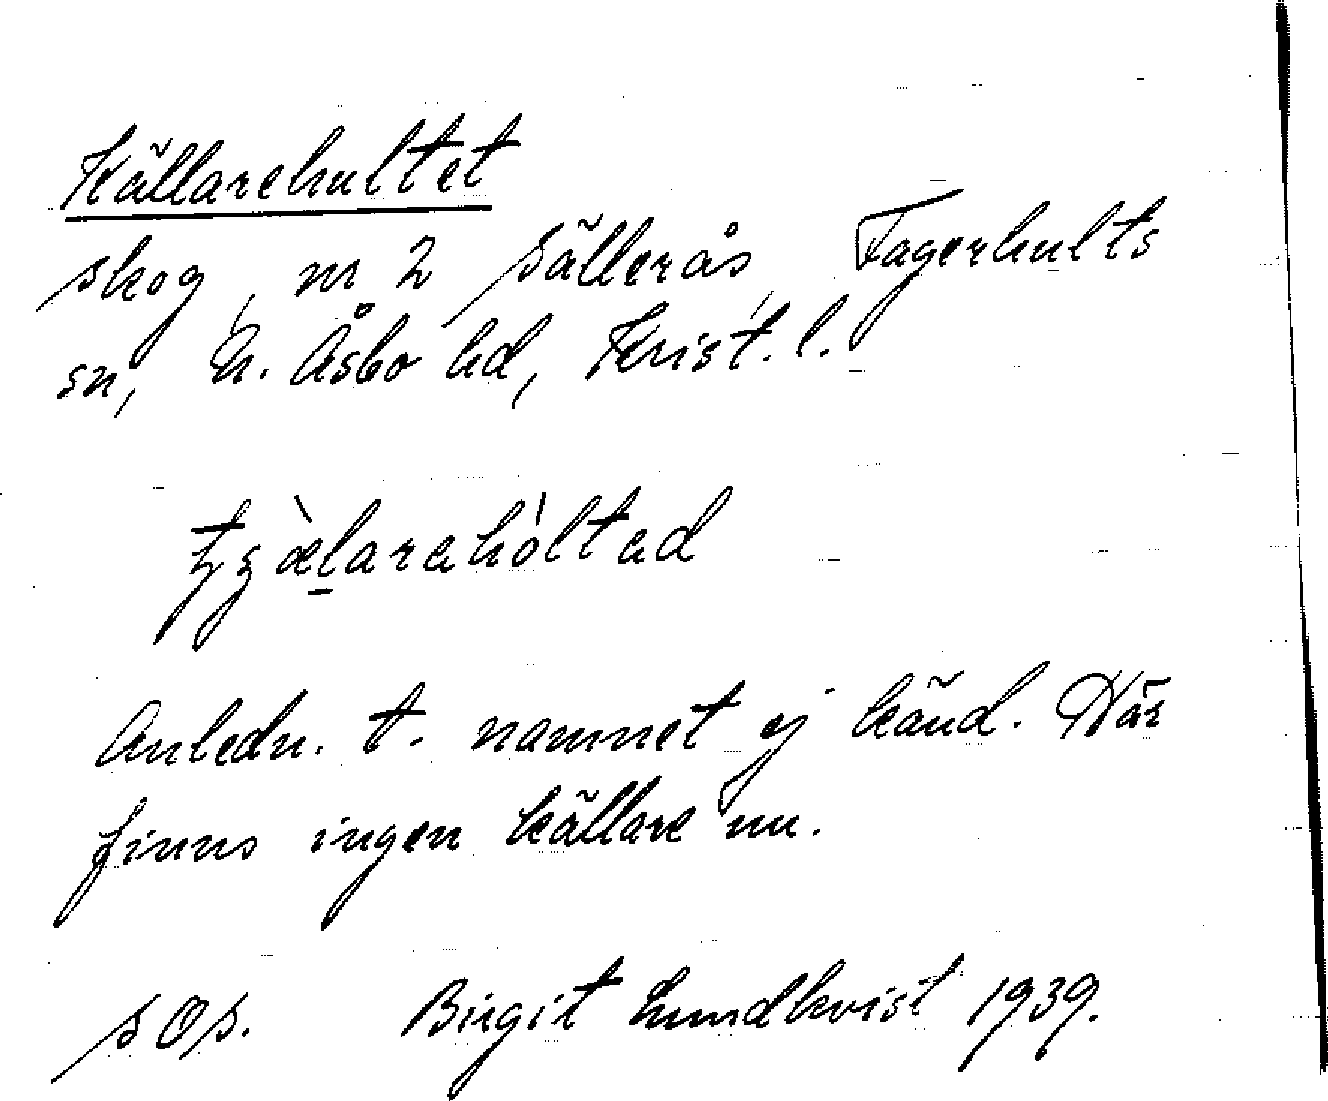 Källarehultet
skog, nr 2 Sällerås, Fagerhults
sn, N. Åsbo hd, Krist. l.
Anledn. t. namnet ej känd. Här
finns ingen källare nu.
SOS. Birgit Lundkvist 1939.